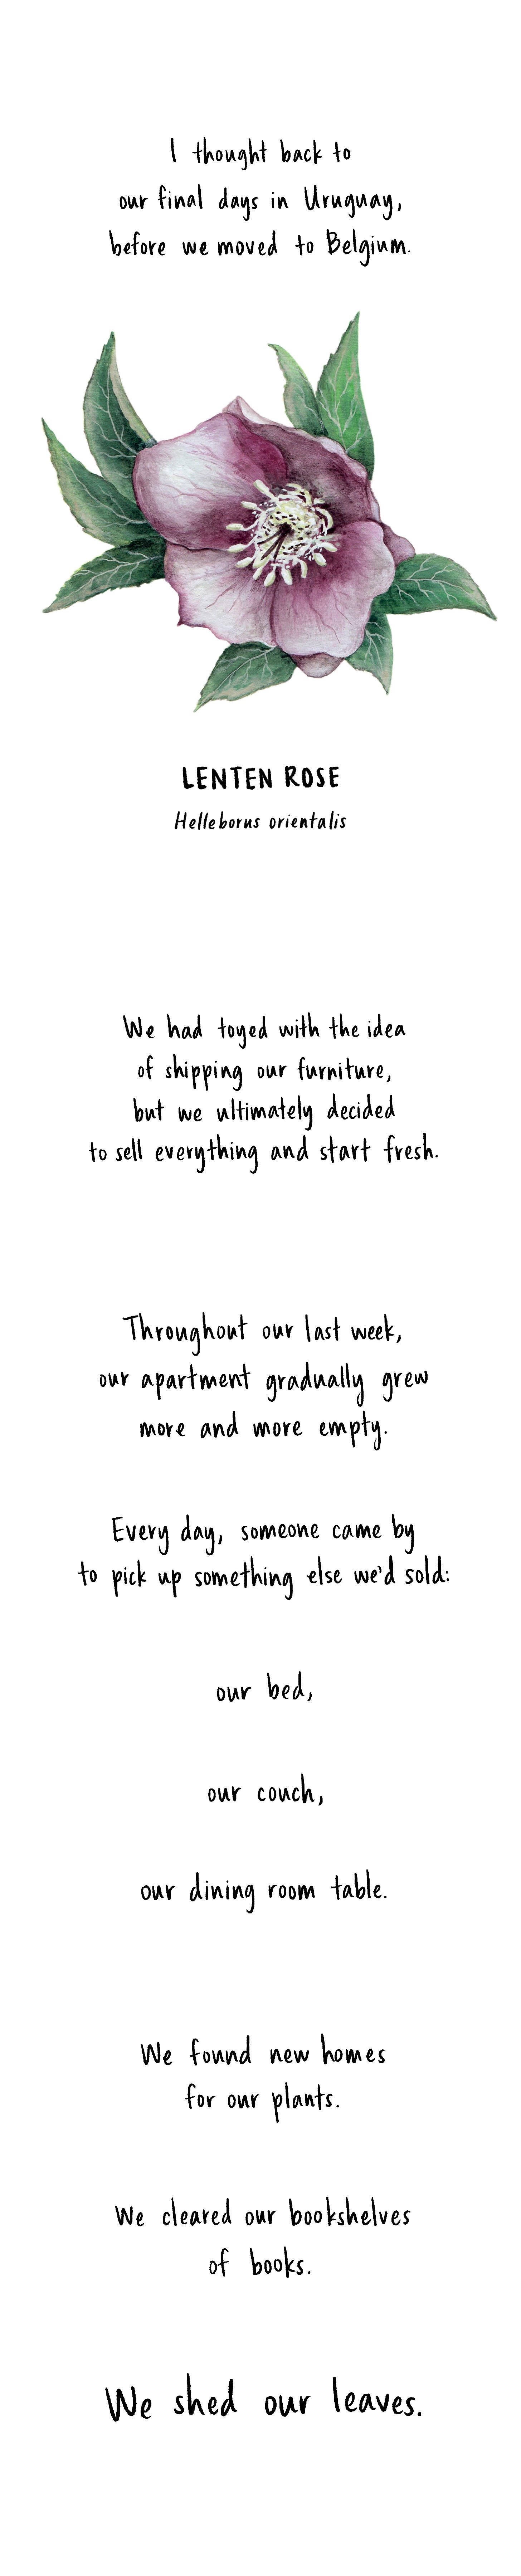 I thought back to
our final days in Uruguay,
before we moved to Belgium.
LENTEN ROSE
Helleborus orientalis
We had toyed with the idea
of shipping our furniture,
but we ultimately decided
to sell everything and start fresh.
Throughout our last week,
our apartment gradually grew
more and more empty.
Every day, someone came by
to pick up something else we'd sold:
our bed,
our couch,
our dining room table.
We found new homes
for our plants.
We cleared our bookshelves
of books.
We shed our leaves.